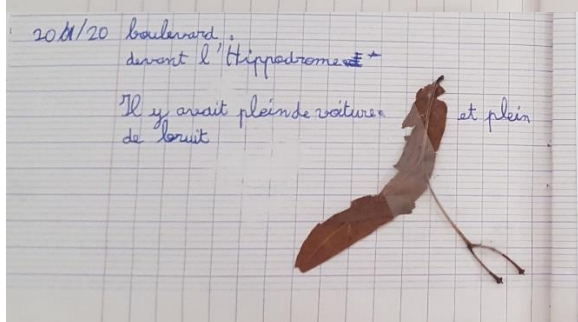 20/11/20 boulevard.
devant l'Hippodrome
Il y avait plein de voitures et plein
de bruit